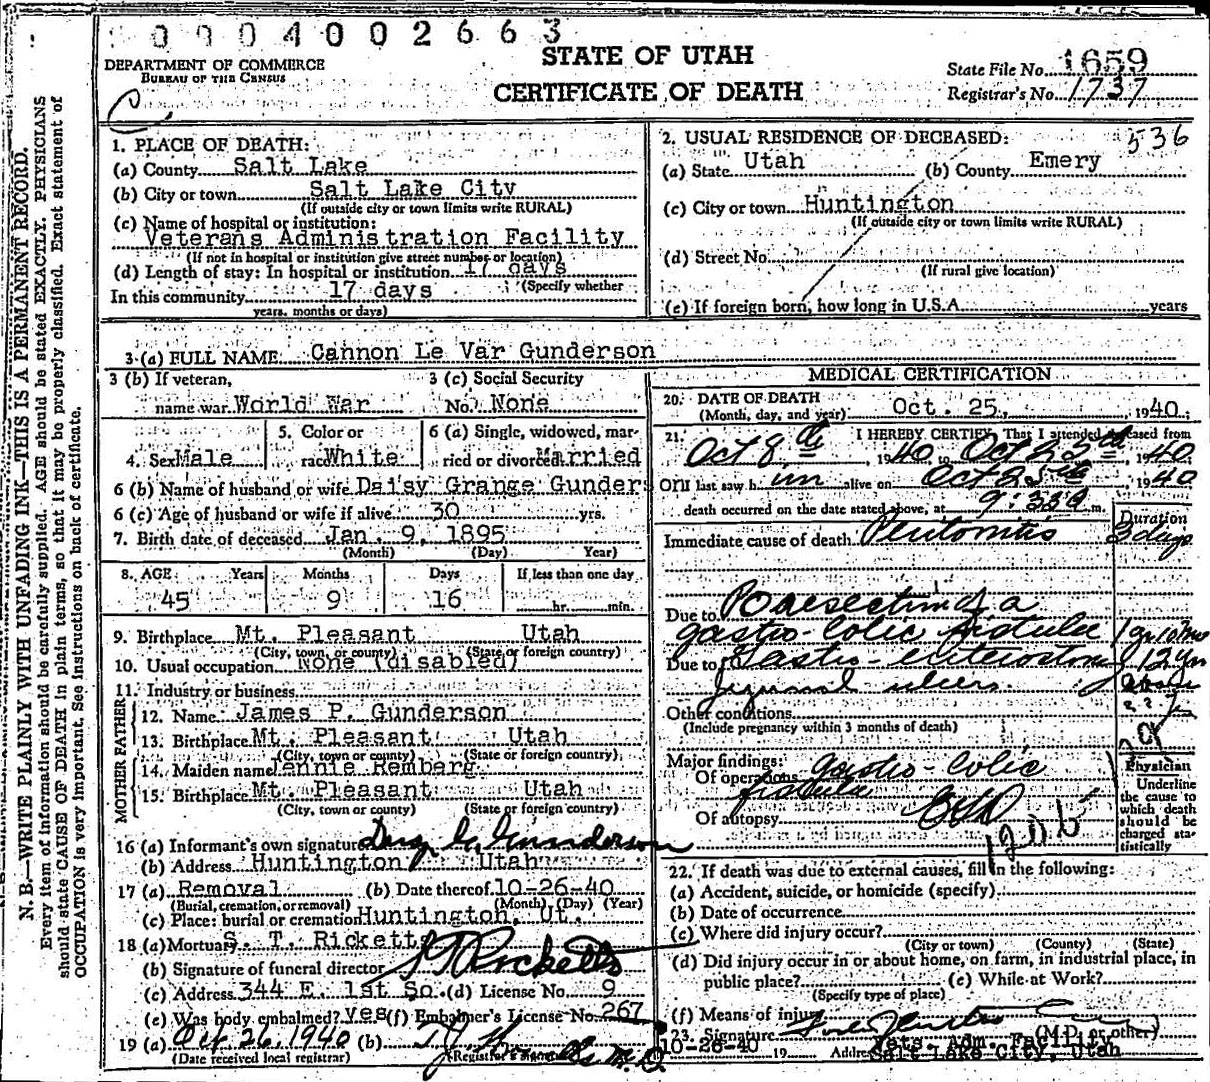 0 0 0 4 0 0 2 6 6 3
STATE OF UTAH
CERTIFICATE OF DEATH
DEPARTMENT OF COMMERCE
BUREAU OF THE CENSUS
State File No. 1659
Registrar's No. 1737
N. B.—WRITE PLAINLY WITH UNFADING INK—THIS IS A PERMANENT RECORD.
Every item of information should be carefully supplied. AGE should be stated EXACTLY. PHYSICIANS
should state CAUSE OF DEATH in plain terms, so that it may be properly classified. Exact statement of
OCCUPATION is very important. See instructions on back of certificate.
1. PLACE OF DEATH:
(a) County Salt Lake
(b) City or town Salt Lake City
(If outside city or town limits write RURAL)
(c) Name of hospital or institution:
Veterans Administration Facility
(If not in hospital or institution give street number or location)
(d) Length of stay: In hospital or institution 17 days
(Specify whether
In this community 17 days
years, months or days)
2. USUAL RESIDENCE OF DECEASED: 536
(a) State Utah (b) County Emery
(c) City or town Huntington
(If outside city or town limits write RURAL)
(d) Street No.
(If rural give location)
(e) If foreign born, how long in U.S.A. years
3 (a) FULL NAME Cannon Le Var Gunderson
3 (b) If veteran, name war World War
3 (c) Social Security No. None
4. Sex Male
5. Color or race White
6 (a) Single, widowed, married or divorced Married
6 (b) Name of husband or wife Daisy Grange Gunders
6 (c) Age of husband or wife if alive 30 yrs.
7. Birth date of deceased Jan. 9, 1895
(Month) (Day) Year)
8. AGE Years Months Days If less than one day
45 9 16 hr. min.
9. Birthplace Mt. Pleasant Utah
(City, town, or county) (State or foreign country)
10. Usual occupation None (disabled)
11. Industry or business
FATHER
12. Name James P. Gunderson
13. Birthplace Mt. Pleasant Utah
(City, town or county) (State or foreign country)
MOTHER
14. Maiden name Jennie Remberg
15. Birthplace Mt. Pleasant Utah
(City, town or county) (State or foreign country)
16 (a) Informant's own signature Gunderson
(b) Address Huntington Utah
17 (a) Removal (b) Date thereof 10-26-40
(Burial, cremation, or removal) (Month) (Day) (Year)
(c) Place: burial or cremation Huntington, Ut.
18 (a) Mortuary S. T. Ricketts
(b) Signature of funeral director Ricketts
(c) Address 344 E. 1st So. (d) License No. 9
(e) Was body embalmed? yes (f) Embalmer's License No. 267
19 (a) Oct 26, 1940 (b) M.D.
(Date received local registrar) (Registrar's signature)
MEDICAL CERTIFICATION
20. DATE OF DEATH
(Month, day, and year) Oct. 25, 1940
21. I HEREBY CERTIFY, That I attended deceased from
Oct 8th, 1940 to Oct 25th, 1940
I last saw him alive on Oct 25th 1940
death occurred on the date stated above, at 9:33a m.
Duration
Immediate cause of death Peritonitis 3 days
Due to Resection of a
gastro-colic fistula 1 yr 10 mo
Due to Gastro-enterostomy 12 yrs
Jejunal ulcers
Other conditions
(Include pregnancy within 3 months of death)
Major findings:
Of operations gastro-colic
fistula
Of autopsy
Physician
Underline
the cause to
which death
should be
charged sta-
tistically
22. If death was due to external causes, fill in the following:
(a) Accident, suicide, or homicide (specify)
(b) Date of occurrence
(c) Where did injury occur?
(City or town) (County) (State)
(d) Did injury occur in or about home, on farm, in industrial place, in
public place? (e) While at Work?
(Specify type of place)
(f) Means of injury
23. Signature (M.D. or other)
10-26-40 19 Address Vets. Adm. Facility
Salt Lake City, Utah